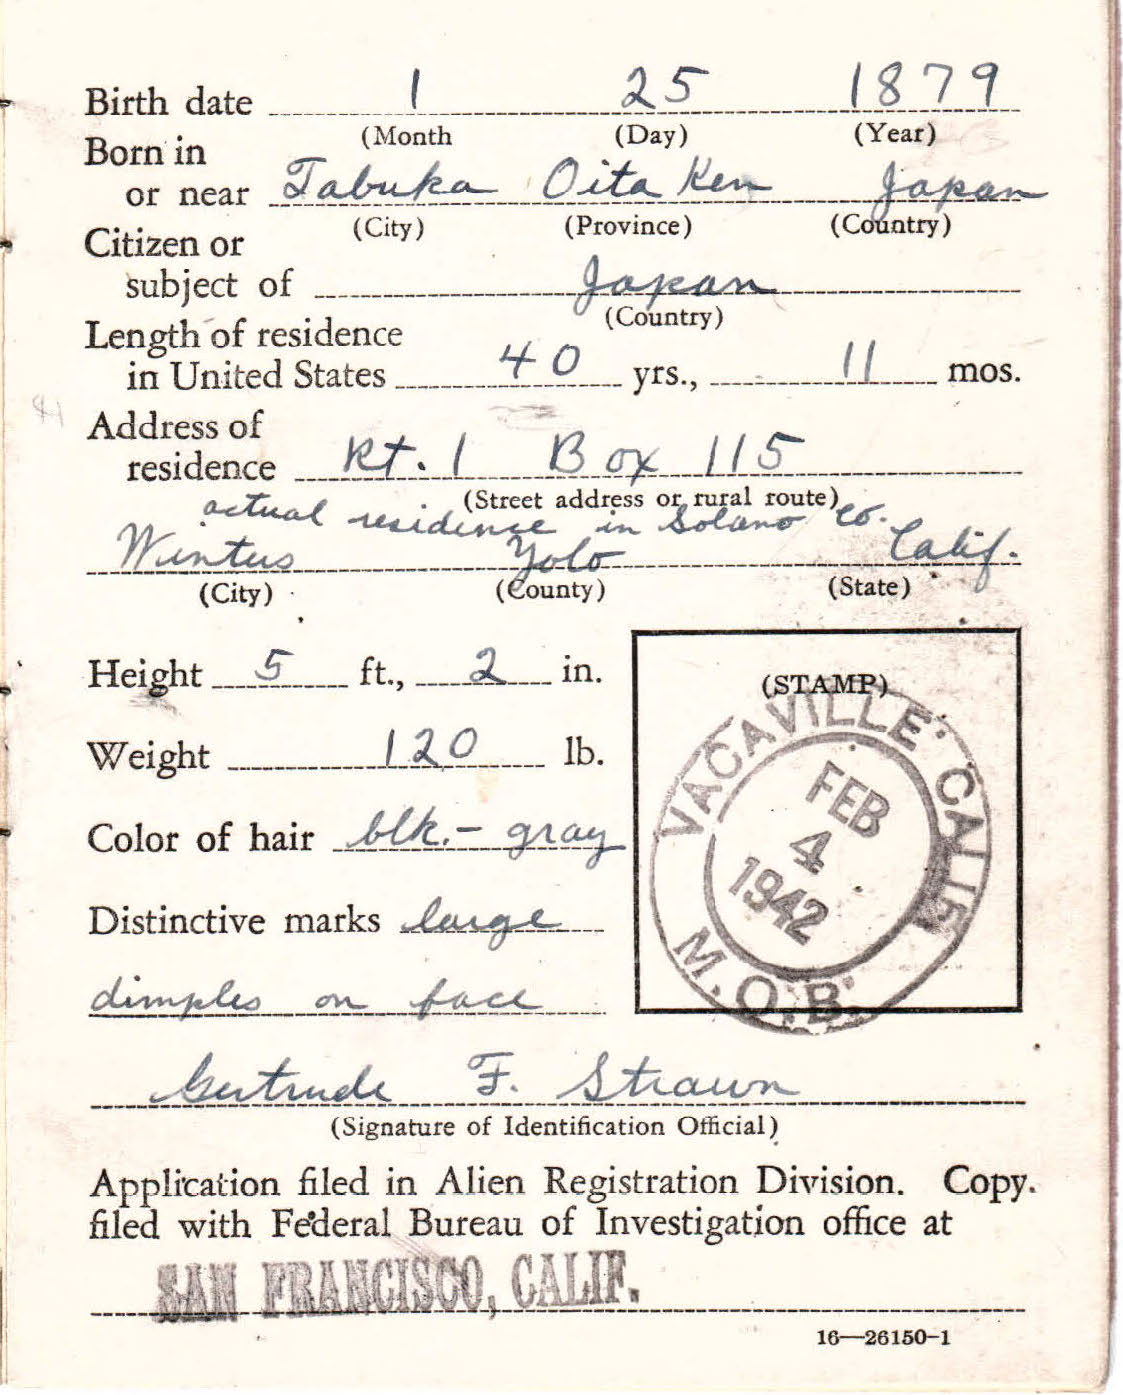 Birth date 1 25 1879
(Month (Day) (Year)
Born in
or near Tabuka Oita Ken Japan
(City) (Province) (Country)
Citizen or
subject of Japan
(Country)
Length of residence
in United States 40 yrs., 11 mos.
Address of
residence Rt. 1 Box 115
(Street address or rural route)
actual residence in Solano Co.
Winters Yolo Calif.
(City) (County) (State)
Height 5 ft., 2 in.
(STAMP)
VACAVILLE CALIF.
FEB
4
1942
M.O.B.
Weight 120 lb.
Color of hair blk.- gray
Distinctive marks large
dimples on face
Gertrude F. Strawn
(Signature of Identification Official)
Application filed in Alien Registration Division. Copy.
filed with Federal Bureau of Investigation office at
SAN FRANCISCO, CALIF.
16—26150-1